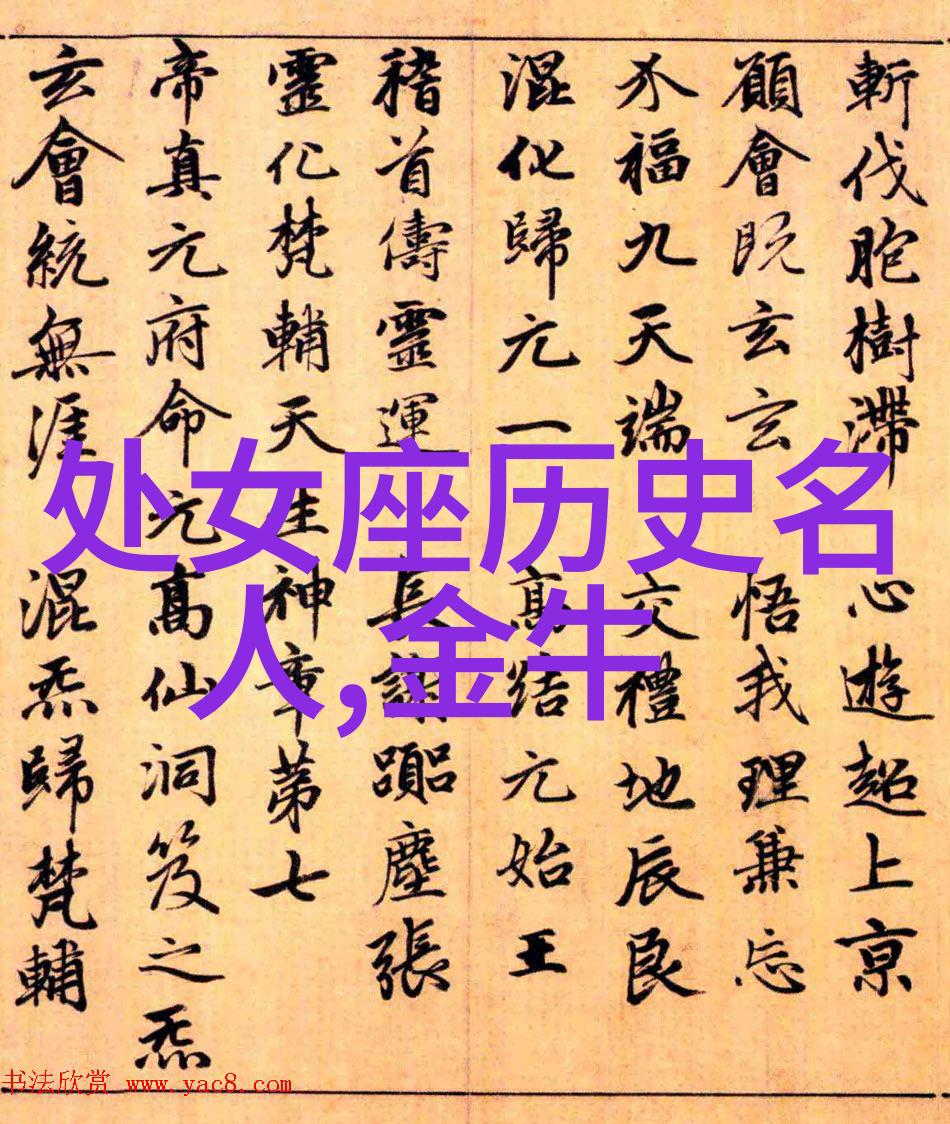 斬伐胞樹滯 心遊超上亰
願會既玄玄 悟我理兼忘
介福九天端 交禮地辰良
混化歸元一 高結元始王
稽首儔靈運 長謝塵張
靈化梵輔天生神章第七
帝真元府命元高仙洞笈之炁
玄會統無涯 混炁歸梵輔
处女座历史名
人,金牛
书法欣赏 www.yac8.com